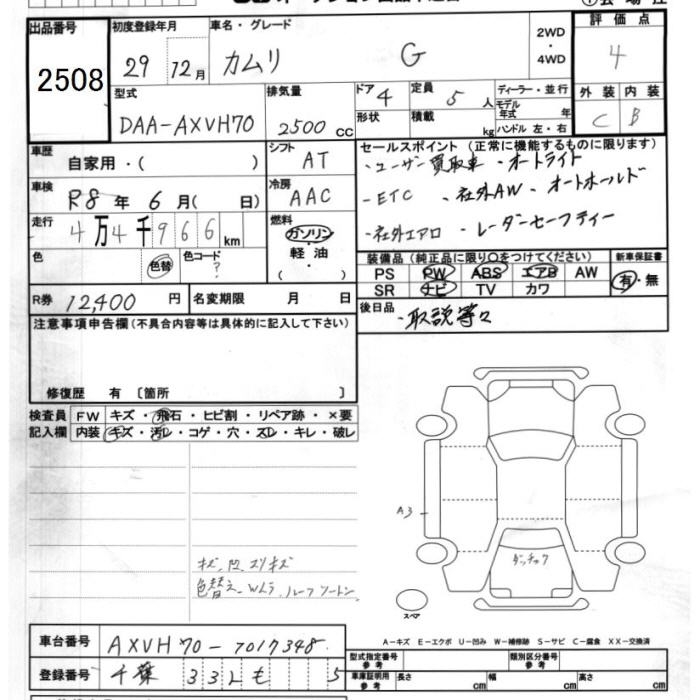 出品番号 初度登録年月 車名・グレード 2WD・4WD 評価点
2508 29 12月 カムリ G 4
型式 排気量 ドア 定員 ディーラー・並行 外装 内装
DAA-AXVH70 2500cc 4 5人 モデル年式 年 C B
形状 積載 kg ハンドル 左・右
車歴 自家用・( ) シフト AT セールスポイント (正常に機能するものに限ります)
・ユーザー買取車 ・オートライト
車検 R8年 6月( 日) 冷房 AAC
・ETC ・社外AW ・オートホールド
走行 4万4千966km 燃料 ガソリン・軽油・( )
・社外エアロ ・レーダーセーフティー
色 色替 色コード ?
装備品 (純正品に限り○をつけてください) 新車保証書
PS PW ABS エアB AW 有・無
SR ナビ TV カワ
R券 12,400円 名変期限 月 日
後日品 ・取説等々
注意事項申告欄(不具合内容等は具体的に記入して下さい)
修復歴 有 〔箇所 〕
検査員 FW キズ・飛石・ヒビ割・リペア跡・×要
記入欄 内装 キズ・汚レ・コゲ・穴・スレ・キレ・破レ
A3
ダッチック
キズ、凹、スリキズ
色替え、Wムラ、ルーフツートン
スペア
A-キズ E-エクボ U-凹み W-補修跡 S-サビ C-腐食 XX-交換済
車台番号 AXVH70-7017348
型式指定番号 参考 類別区分番号 参考
登録番号 千葉 331 も 5
車庫証明用 参考 長さ cm 幅 cm 高さ cm